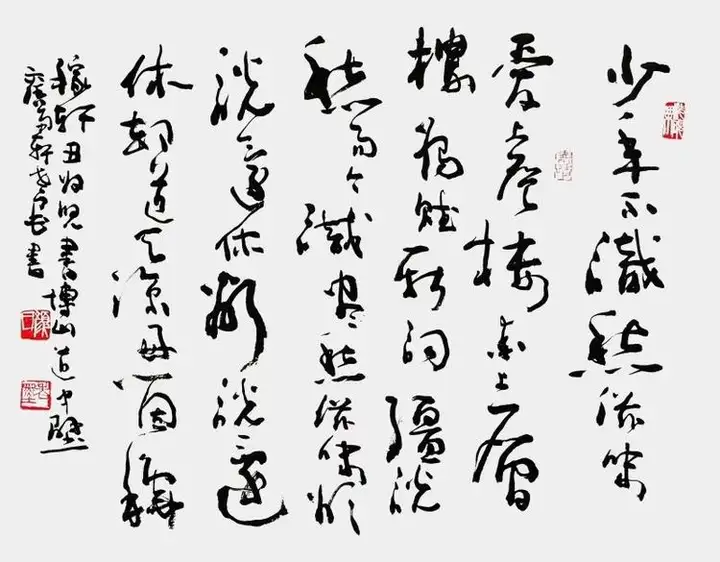 少年不識愁滋味
愛上層樓愛上層
樓為賦新詞彊說
愁而今識盡愁滋味欲
說還休欲說還
休却道天涼好個秋
稼軒丑奴兒書博山道中壁
軒 書